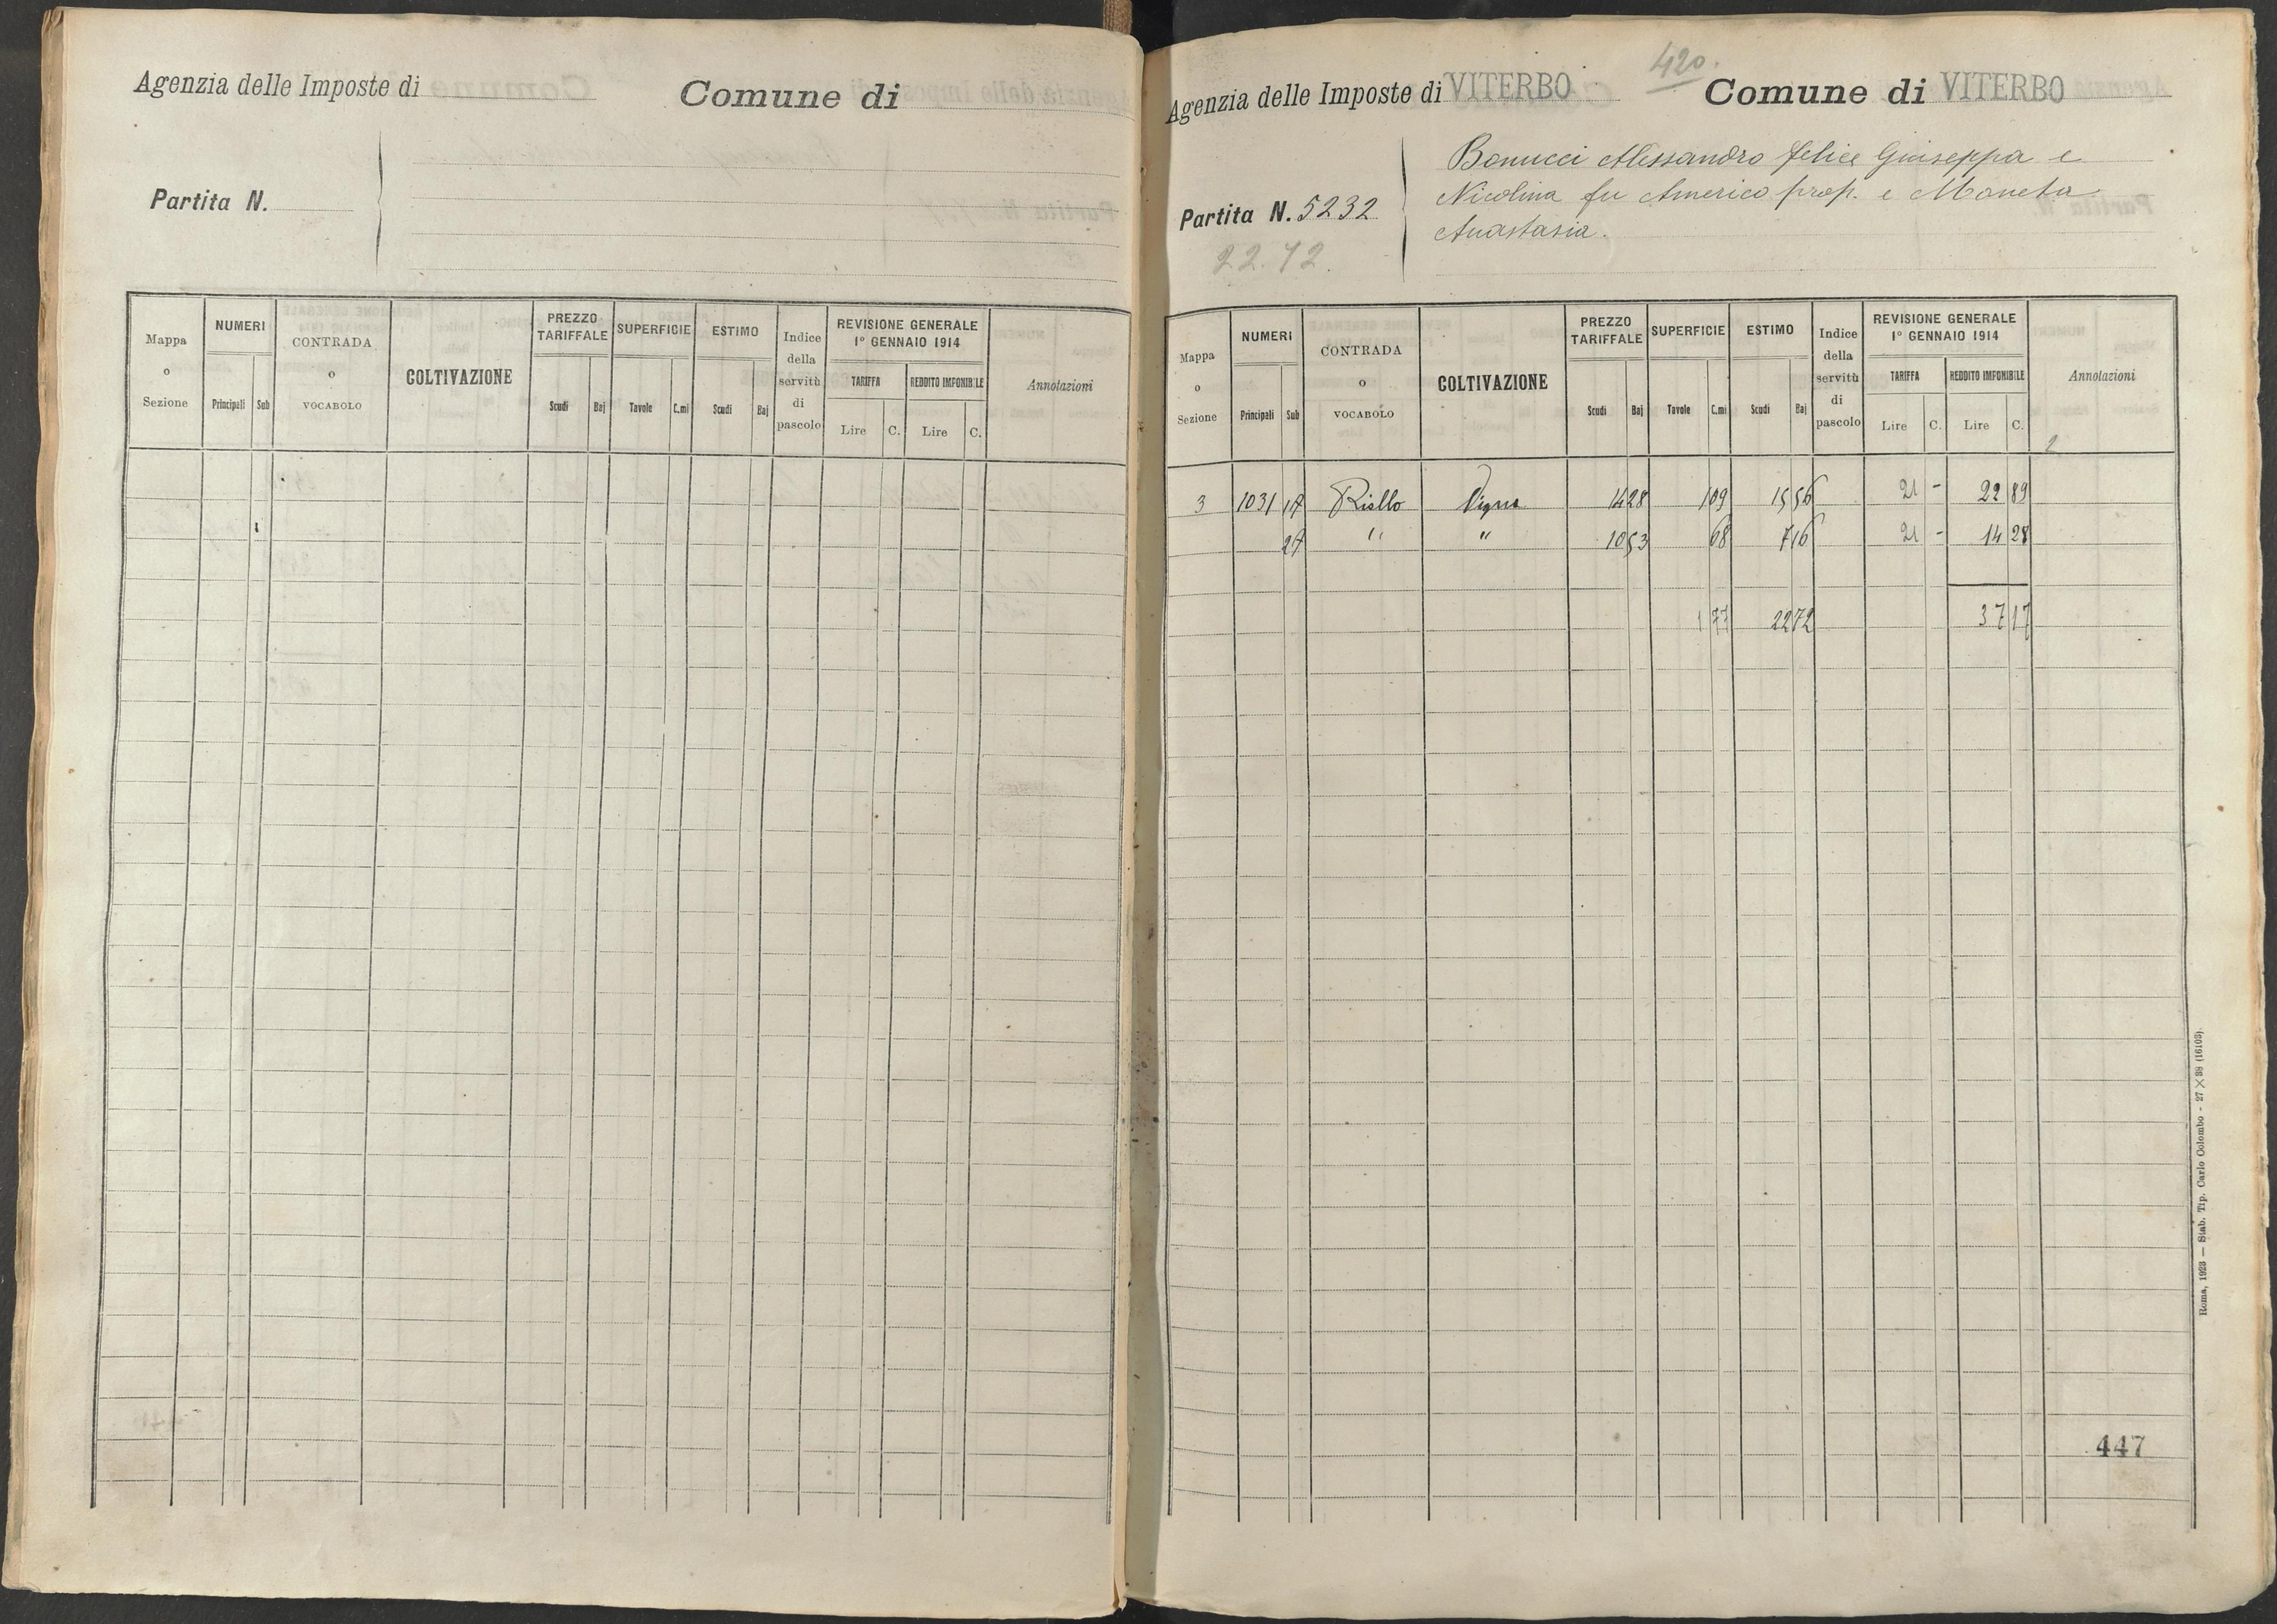 Agenzia delle Imposte di
Comune di
Partita N.
Mappa o Sezione
NUMERI
Principali Sub
CONTRADA o VOCABOLO
COLTIVAZIONE
PREZZO TARIFFALE
Scudi Baj
SUPERFICIE
Tavole C.mi
ESTIMO
Scudi Baj
Indice della servitù di pascolo
REVISIONE GENERALE
1° GENNAIO 1914
TARIFFA REDDITO IMPONIBILE
Lire C. Lire C.
Annotazioni
420.
Agenzia delle Imposte di VITERBO Comune di VITERBO
Bonucci Alessandro felice Giuseppa e
Partita N. 5232 Nicolina fu Americo prop. e Moneta
Anastasia.
22.72.
Mappa o Sezione
NUMERI
Principali Sub
CONTRADA o VOCABOLO
COLTIVAZIONE
PREZZO TARIFFALE
Scudi Baj
SUPERFICIE
Tavole C.mi
ESTIMO
Scudi Baj
Indice della servitù di pascolo
REVISIONE GENERALE
1° GENNAIO 1914
TARIFFA REDDITO IMPONIBILE
Lire C. Lire C.
Annotazioni
3 1031 Riello Vigna 14 28 1 09 15 56 21 - 22 89
" " 10 53 68 7 16 21 - 14 28
1 77 22 72 37 17
447
Roma, 1923 — Stab. Tip. Carlo Colombo - 27 × 38 (16103).